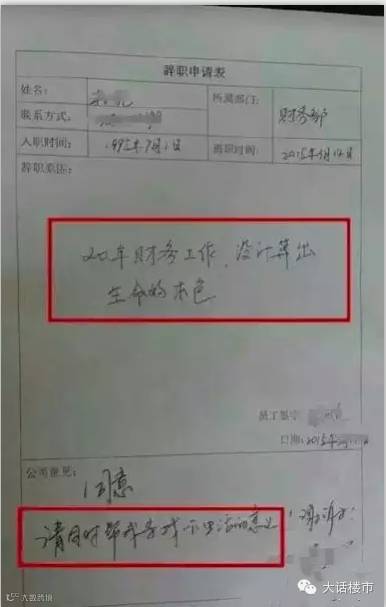 辞职申请表
姓名:
所属部门:
财务部
联系方式:
入职时间:
1995年7月1日
离职时间:
辞职原因:
20年财务工作,没计算出
生命的本色
员工签字:
日期:2015年
公司意见:
同意
请同时帮我寻找一下生活的意义!谢谢!
大数跨境
大话楼市